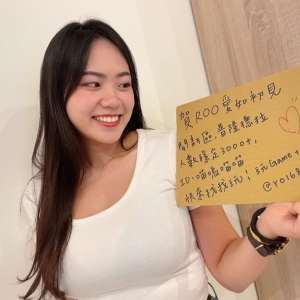 賀ROO愛如初見
開新區,普隆德拉
人數穩定3000+,
ID:喵嗚喵喵
快來找我玩!玩Game+
@ro168